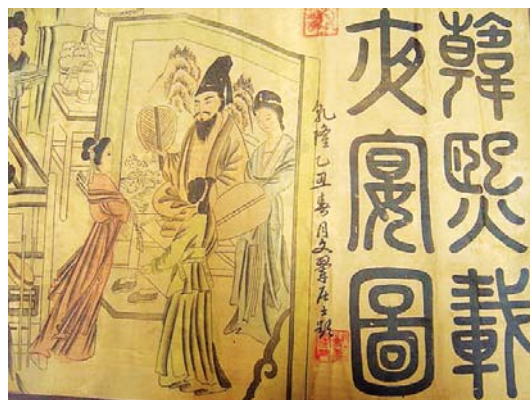 韓熙載
夜宴圖
乾隆乙丑春月文居士題